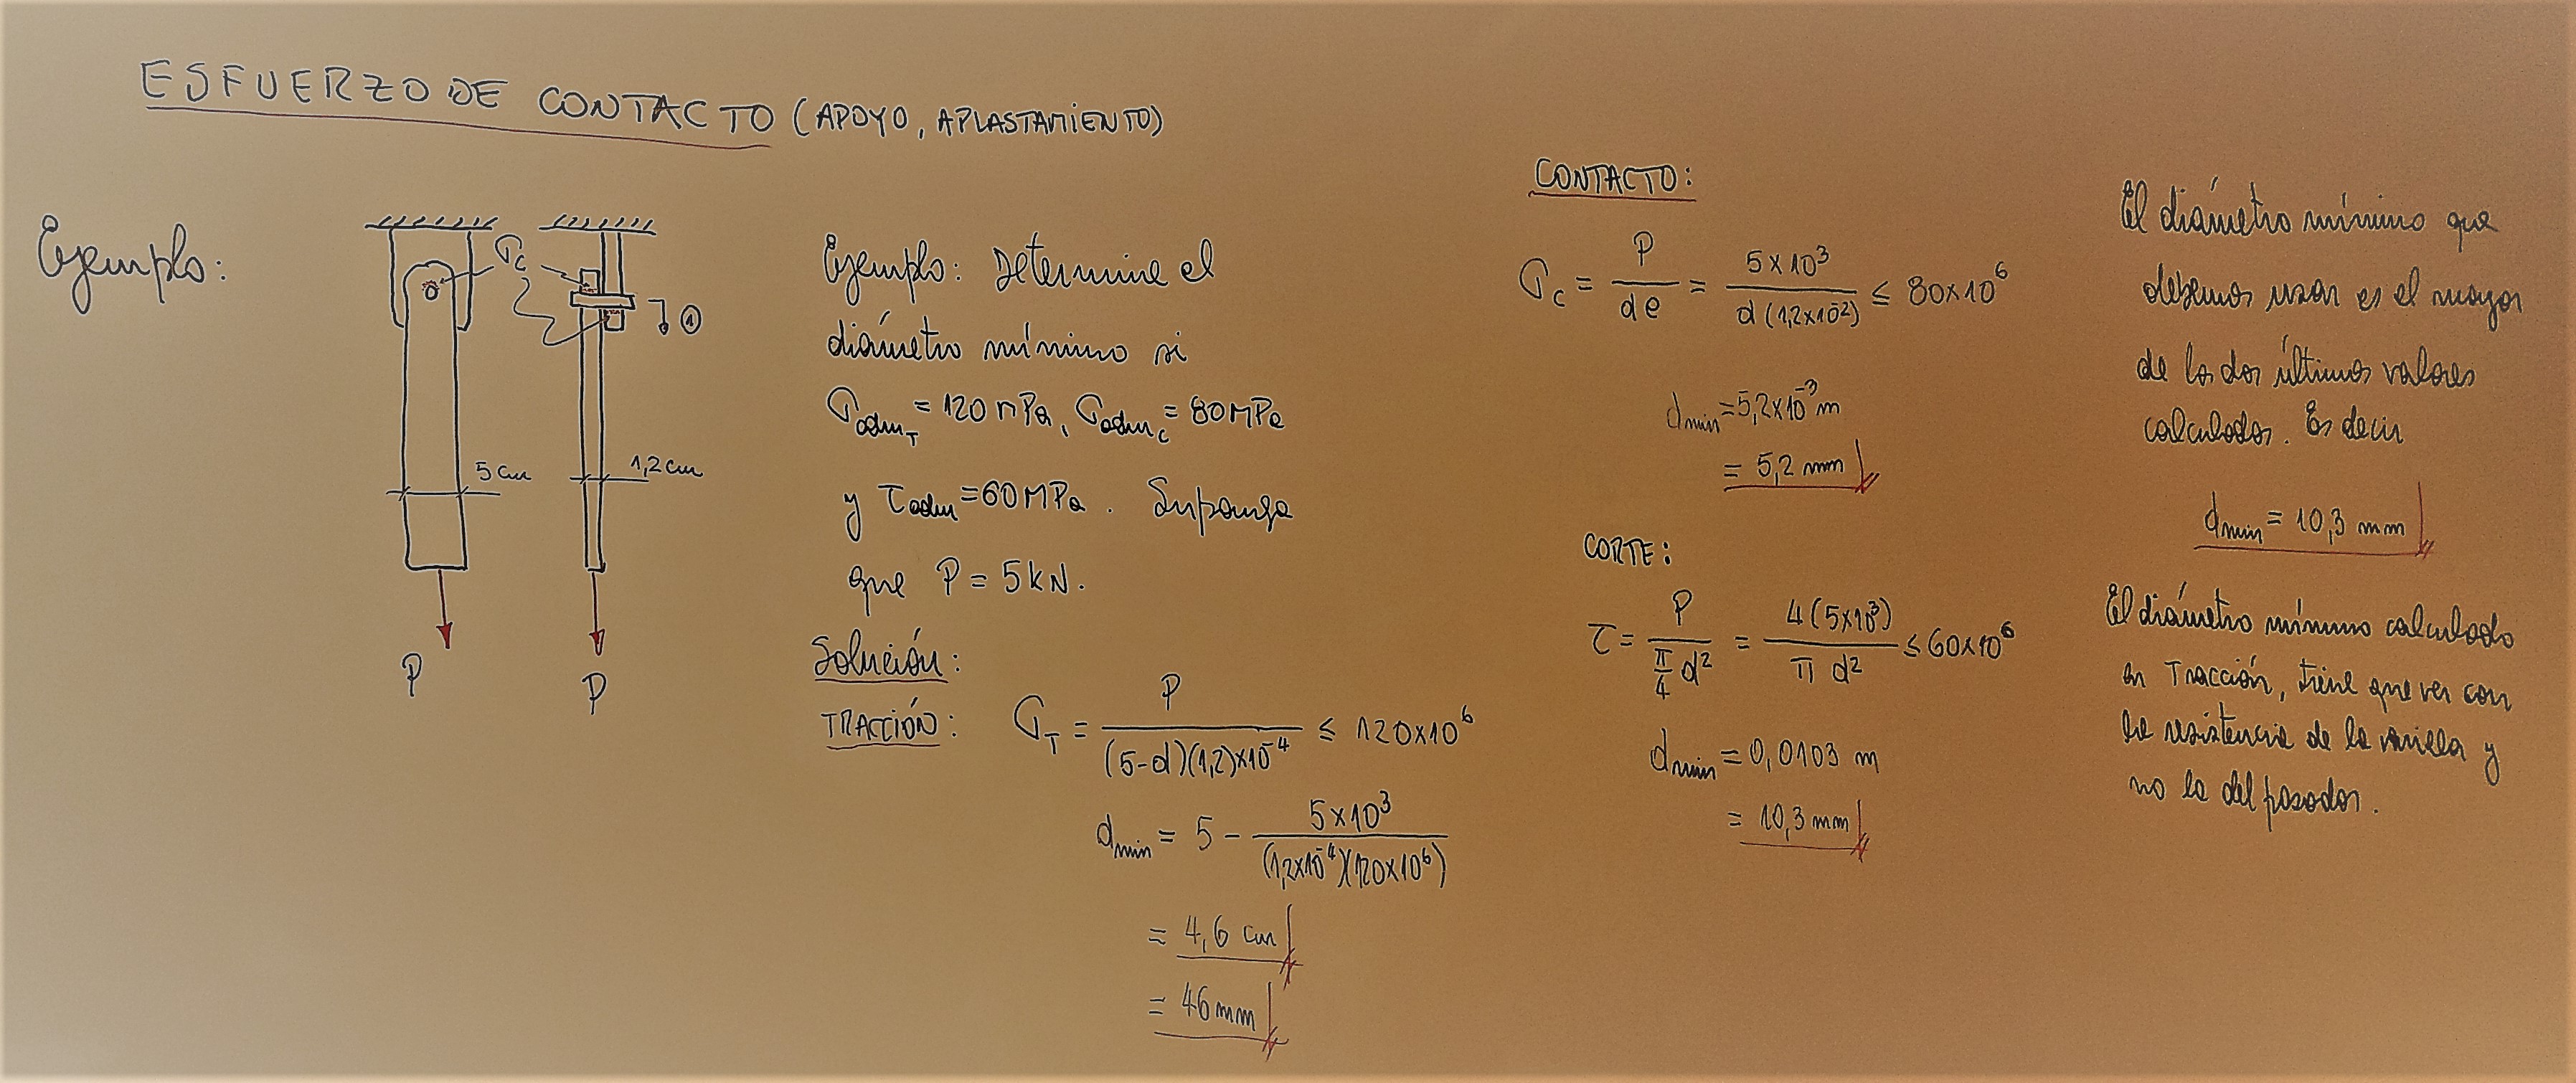 ESFUERZO DE CONTACTO (APOYO, APLASTAMIENTO)
Ejemplo:
σc
①
5 cm
1,2 cm
P
P
Ejemplo: Determine el
diámetro mínimo si
σadm_T = 120 MPa, σadm_c = 80 MPa
y τadm = 60 MPa. Suponga
que P = 5 kN.
Solución:
TRACCIÓN: σ_T = P / (5-d)(1,2)×10⁻⁴ ≤ 120×10⁶
dmin = 5 - 5×10³ / (1,2×10⁻⁴)(120×10⁶)
= 4,6 cm
= 46 mm
CONTACTO:
σc = P / de = 5×10³ / d(1,2×10⁻²) ≤ 80×10⁶
dmin = 5,2×10⁻³ m
= 5,2 mm
CORTE:
τ = P / (π/4 d²) = 4(5×10³) / π d² ≤ 60×10⁶
dmin = 0,0103 m
= 10,3 mm
El diámetro mínimo que
debemos usar es el mayor
de los dos últimos valores
calculados. Es decir
dmin = 10,3 mm
El diámetro mínimo calculado
en Tracción, tiene que ver con
la resistencia de la varilla y
no la del pasador.